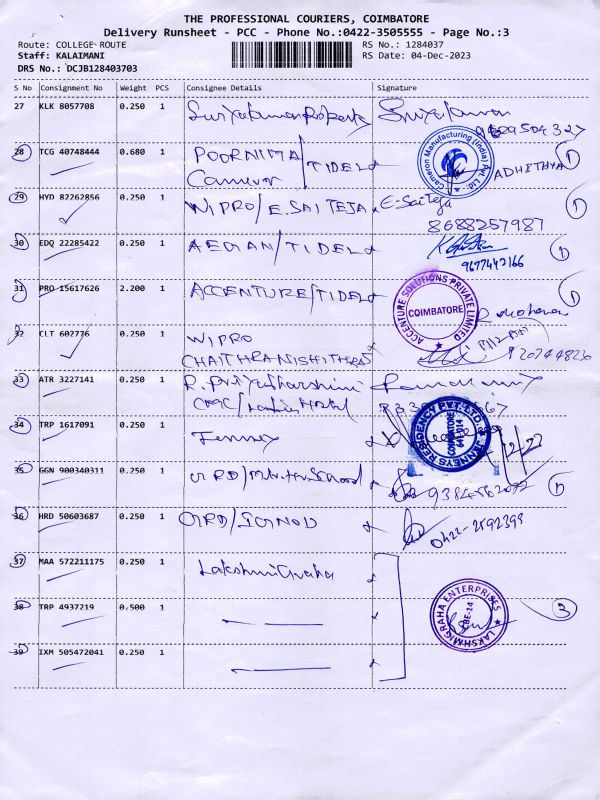 THE PROFESSIONAL COURIERS, COIMBATORE
Delivery Runsheet - PCC - Phone No.:0422-3505555 - Page No.:3
Route: COLLEGE ROUTE
RS No.: 1284037
Staff: KALAIMANI
RS Date: 04-Dec-2023
DRS No.: DCJB128403703
S No Consignment No Weight PCS Consignee Details Signature
27 KLK 8057708 0.250 1
28 TCG 40748444 0.680 1 POORNIMA/TIDEL
Cameron
Cameron Manufacturing (India) Pvt. Ltd.
ADHITHYA
29 HYD 82262856 0.250 1 WIPRO/E.SAI TEJA E-Sai Teja
8688257987
30 EDQ 22285422 0.250 1 AEGIAN/TIDEL
9677442166
31 PRO 15617626 2.200 1 ACCENTURE/TIDEL
ACCENTURE SOLUTIONS PRIVATE LIMITED
COIMBATORE
32 CLT 602776 0.250 1 WIPRO
33 ATR 3227141 0.250 1 R. Priyadharshini
34 TRP 1617091 0.250 1 Jenneys
JENNEYS RESIDENCY PVT. LTD.
COIMBATORE
641 014
35 GGN 900340311 0.250 1
36 HRD 50603687 0.250 1 GRD/IGNOU
0422-2592393
37 MAA 572211175 0.250 1 LakshmiGraha
38 TRP 4937219 0.500 1
LAKSHMIGRAHA ENTERPRISES
CBE-14
39 IXM 505472041 0.250 1